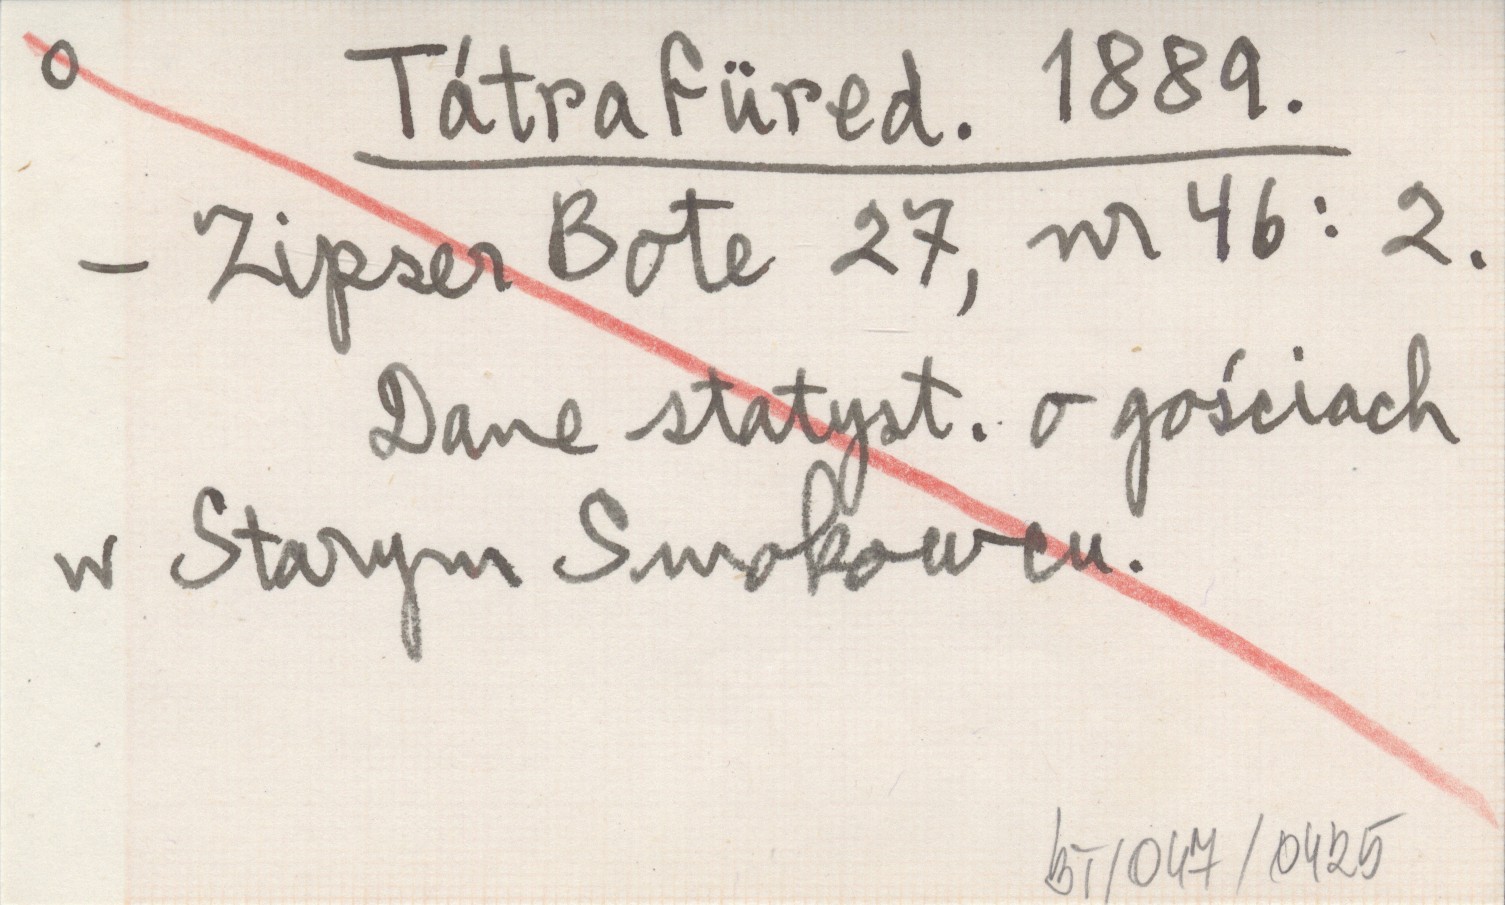 o Tátrafüred. 1889.
– Zipser Bote 27, nr 46: 2.
Dane statyst. o gościach
w Starym Smokowcu.
BT/047/0425